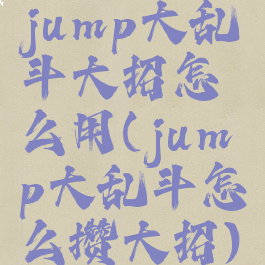 jump大乱
斗大招怎
么用(jum
p大乱斗怎
么攒大招)